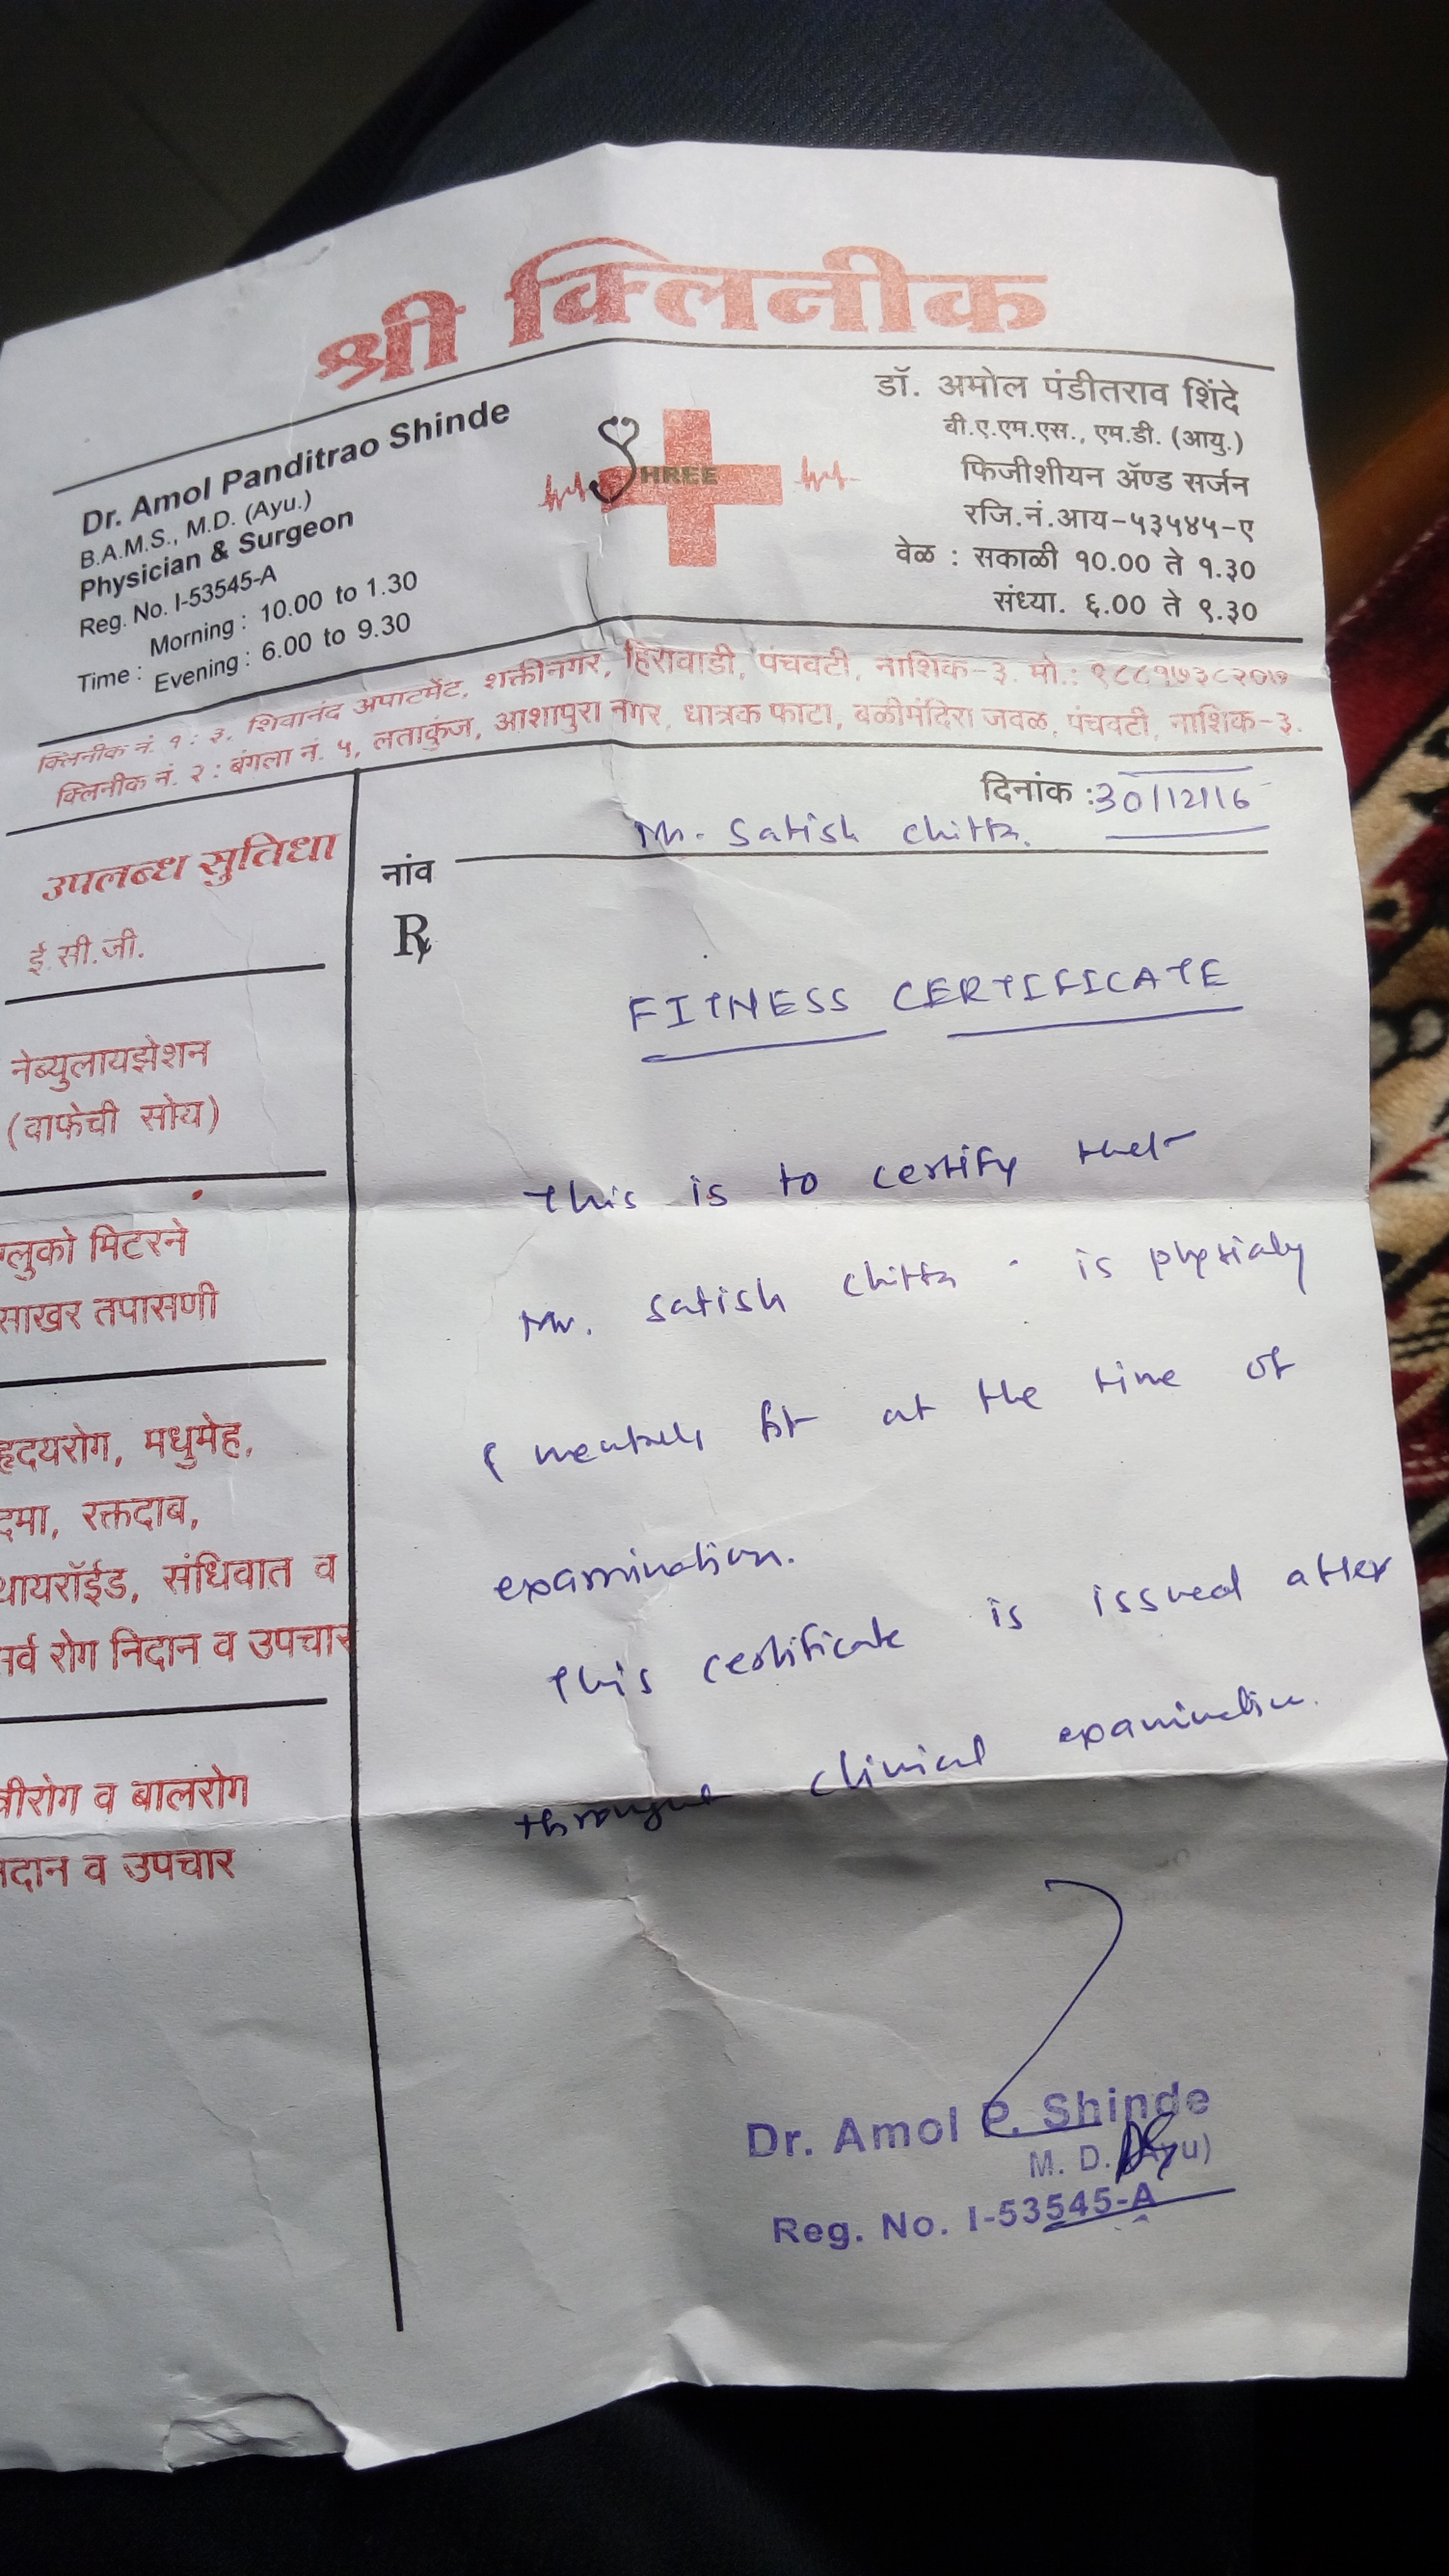 श्री क्लिनीक
Dr. Amol Panditrao Shinde
B.A.M.S., M.D. (Ayu.)
Physician & Surgeon
Reg. No. I-53545-A
Time : Morning : 10.00 to 1.30
Evening : 6.00 to 9.30
SHREE
डॉ. अमोल पंडीतराव शिंदे
बी.ए.एम.एस., एम.डी. (आयु.)
फिजीशीयन ॲण्ड सर्जन
रजि.नं.आय-५३५४५-ए
वेळ : सकाळी १०.00 ते १.३०
संध्या. ६.00 ते ९.३०
क्लिनीक नं. १ : ३, शिवानंद अपाटमेंट, शक्तीनगर, हिरावाडी, पंचवटी, नाशिक-३. मो.: ९८८१७३८२०७
क्लिनीक नं. २ : बंगला नं. ५, लताकुंज, आशापुरा नगर, धात्रक फाटा, बळीमंदिरा जवळ, पंचवटी, नाशिक-३.
दिनांक :30/12/16
नांव Mr. Satish Chitta.
Rx
उपलब्ध सुविधा
ई.सी.जी.
नेब्युलायझेशन
(वाफेची सोय)
ग्लुको मिटरने
साखर तपासणी
हृदयरोग, मधुमेह,
दमा, रक्तदाब,
थायरॉईड, संधिवात व
सर्व रोग निदान व उपचार
स्त्रीरोग व बालरोग
निदान व उपचार
FITNESS CERTIFICATE
This is to certify that
Mr. Satish Chitta is physialy
& mentaly fit at the time of
examination.
This certificate is issued after
through clinical examination.
Dr. Amol P. Shinde
M. D. (Ayu)
Reg. No. I-53545-A